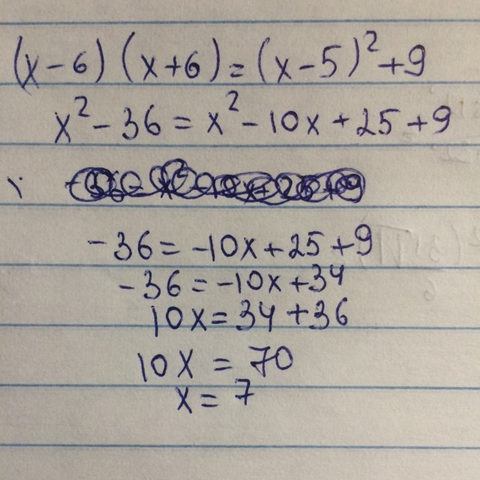 (x-6)(x+6)=(x-5)²+9
x²-36=x²-10x+25+9
-36=-10x+25+9
-36=-10x+34
10x=34+36
10x=70
x=7